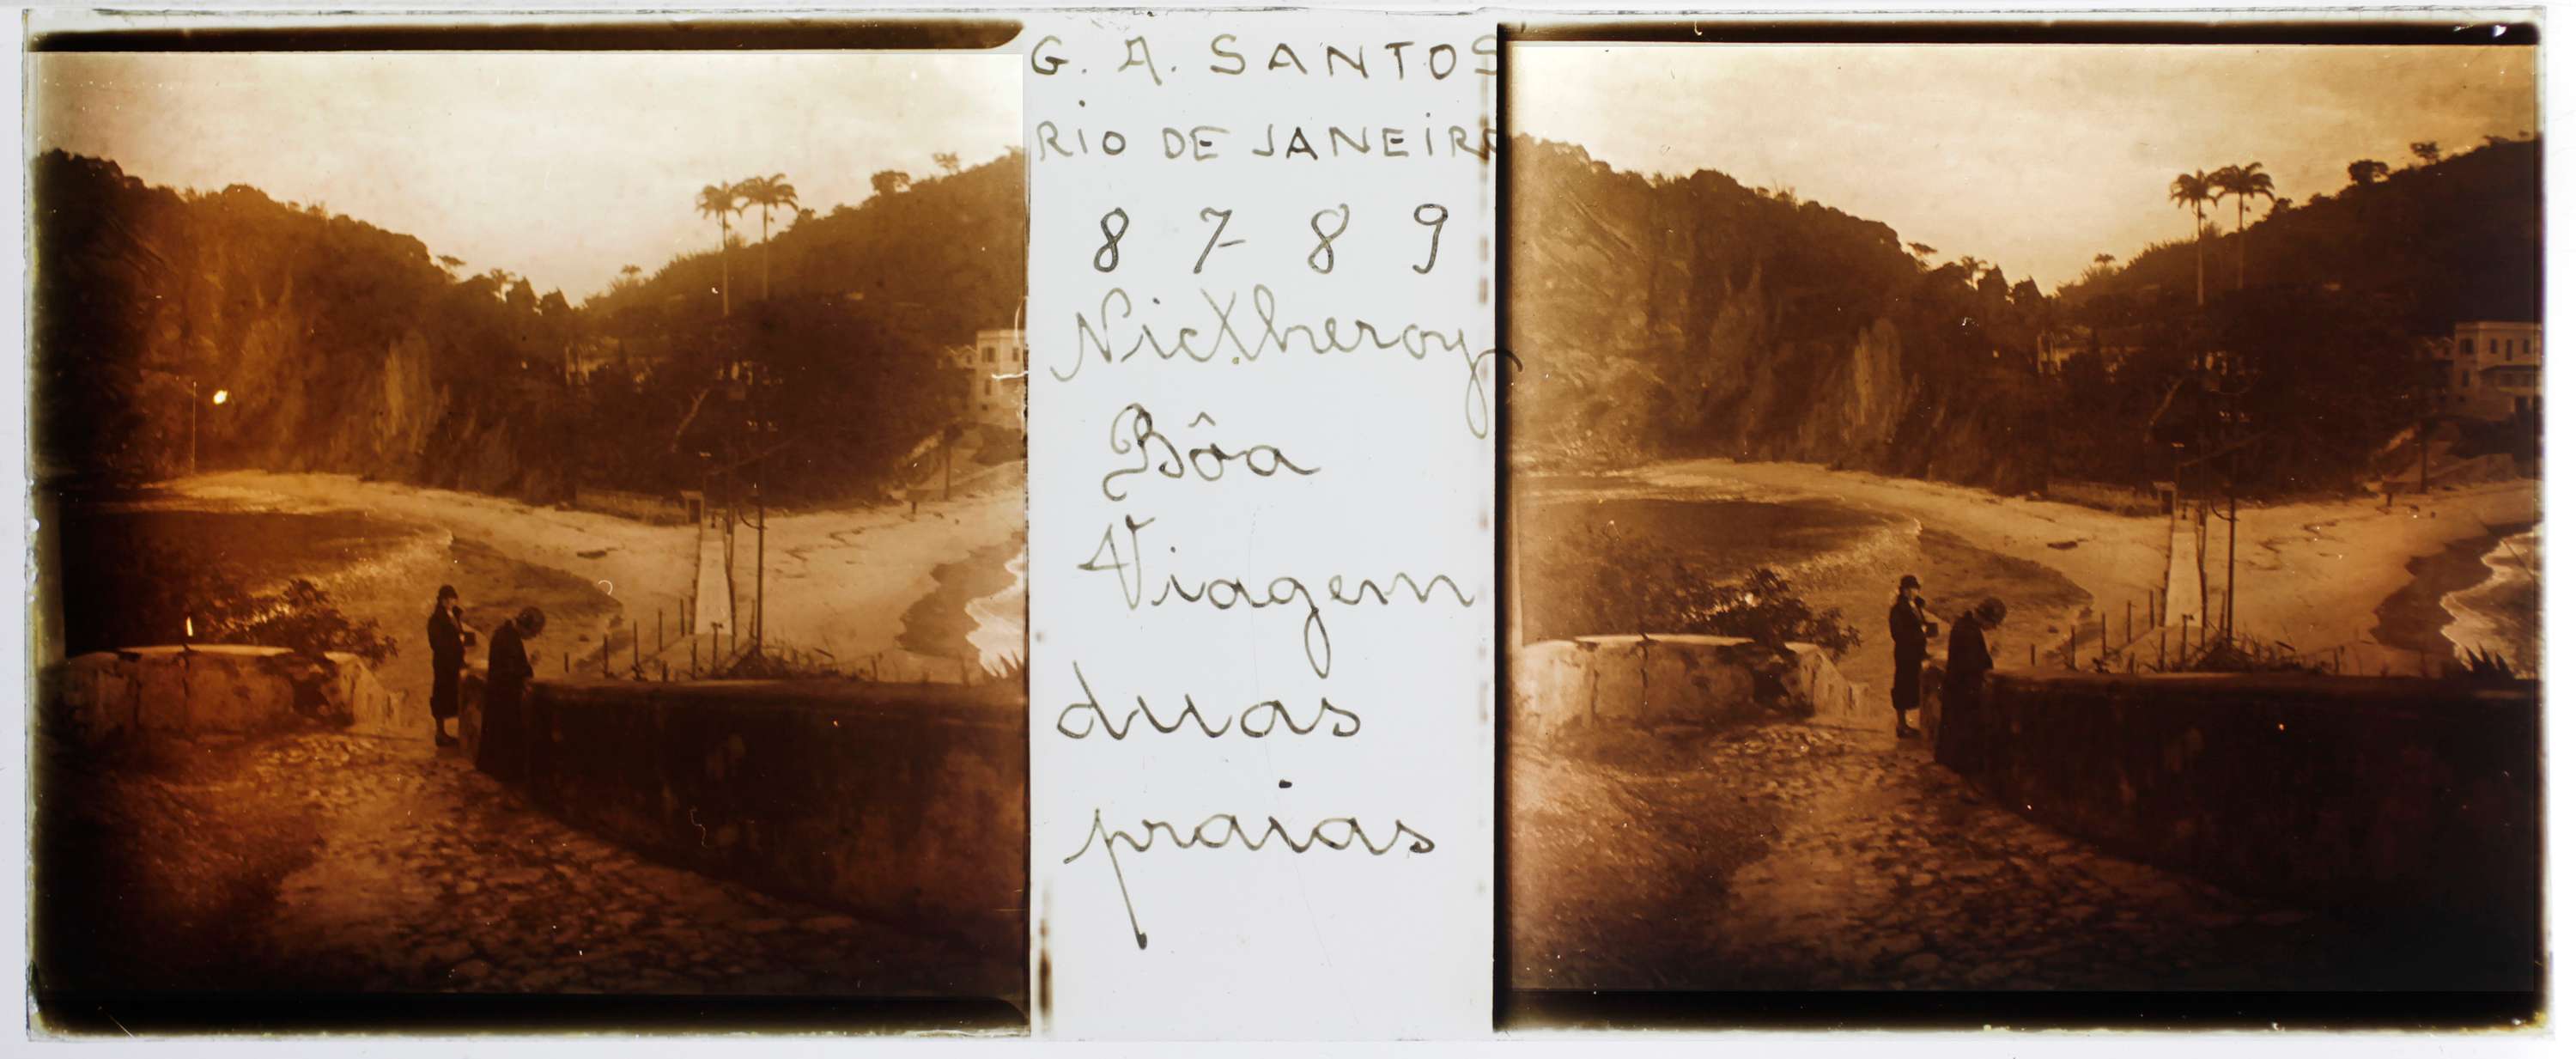 G. A. SANTOS
RIO DE JANEIRO
8 7 8 9
Nictheroy
Bôa
Viagem
duas
praias